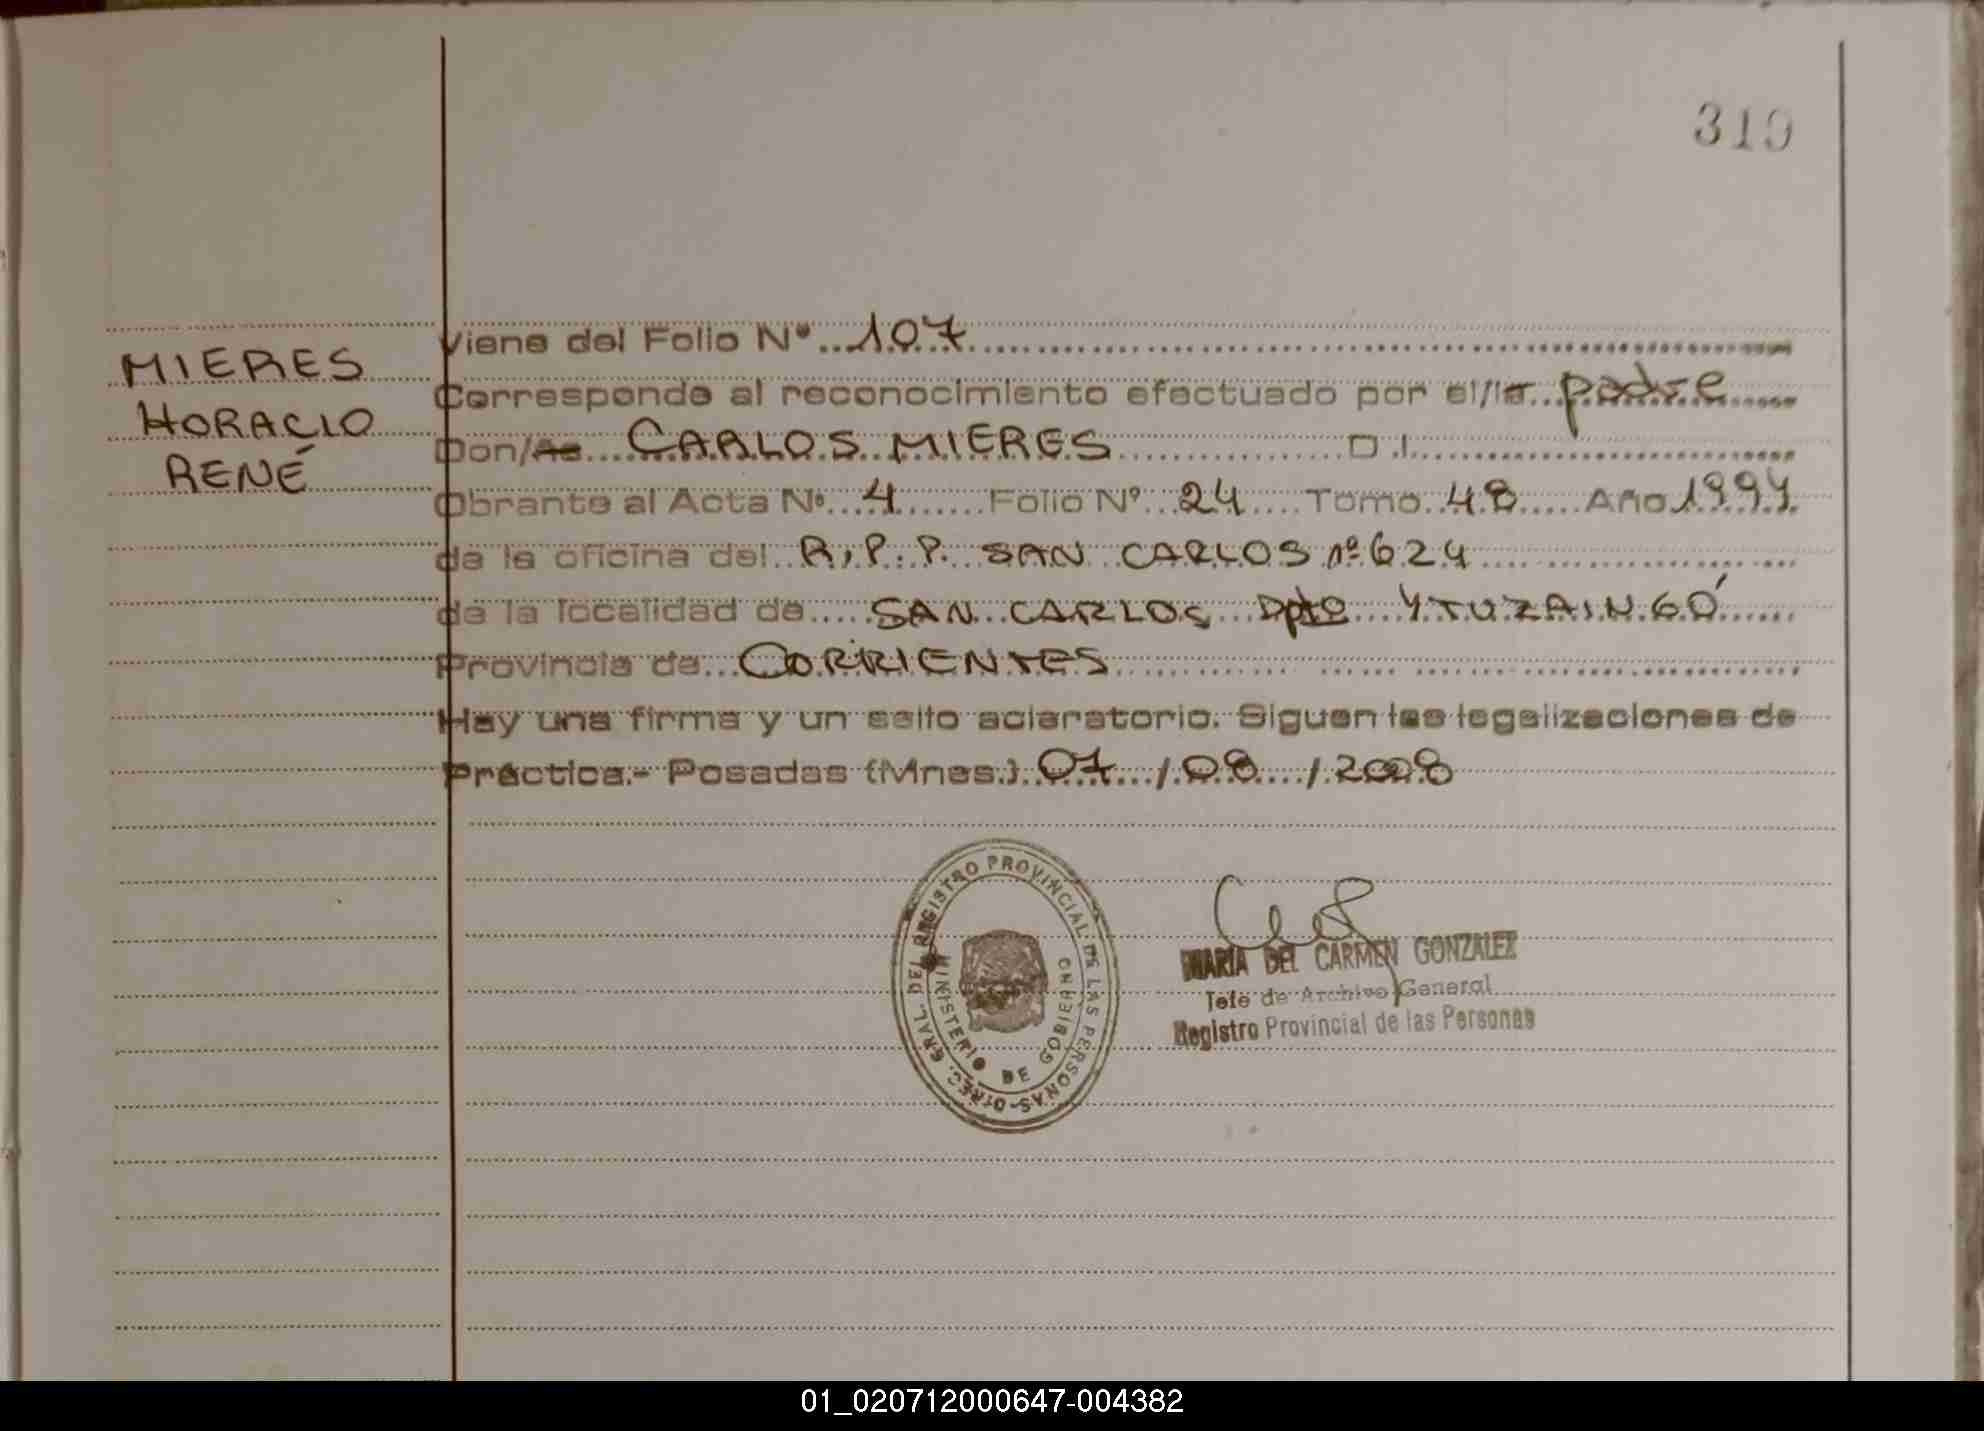 319
MIERES
HORACIO
RENÉ
Viene del Folio Nº 107
Corresponde al reconocimiento efectuado por el/la padre
Don/Ae CARLOS MIERES D.I.
Obrante al Acta Nº 4 Folio Nº 24 Tomo 48 Año 1994
de la oficina del R.P.P. SAN CARLOS nº 624
de la localidad de SAN CARLOS Dpto YTUZAINGÓ
Provincia de CORRIENTES
Hay una firma y un sello aclaratorio. Siguen las legalizaciones de
Práctica.- Posadas (Mnes.) 07 / 08 / 2008
DIREC. GRAL. DEL REGISTRO PROVINCIAL DE LAS PERSONAS-
MINISTERIO DE GOBIERNO
MARIA DEL CARMEN GONZALEZ
Jefe de Archivo General
Registro Provincial de las Personas
01_020712000647-004382